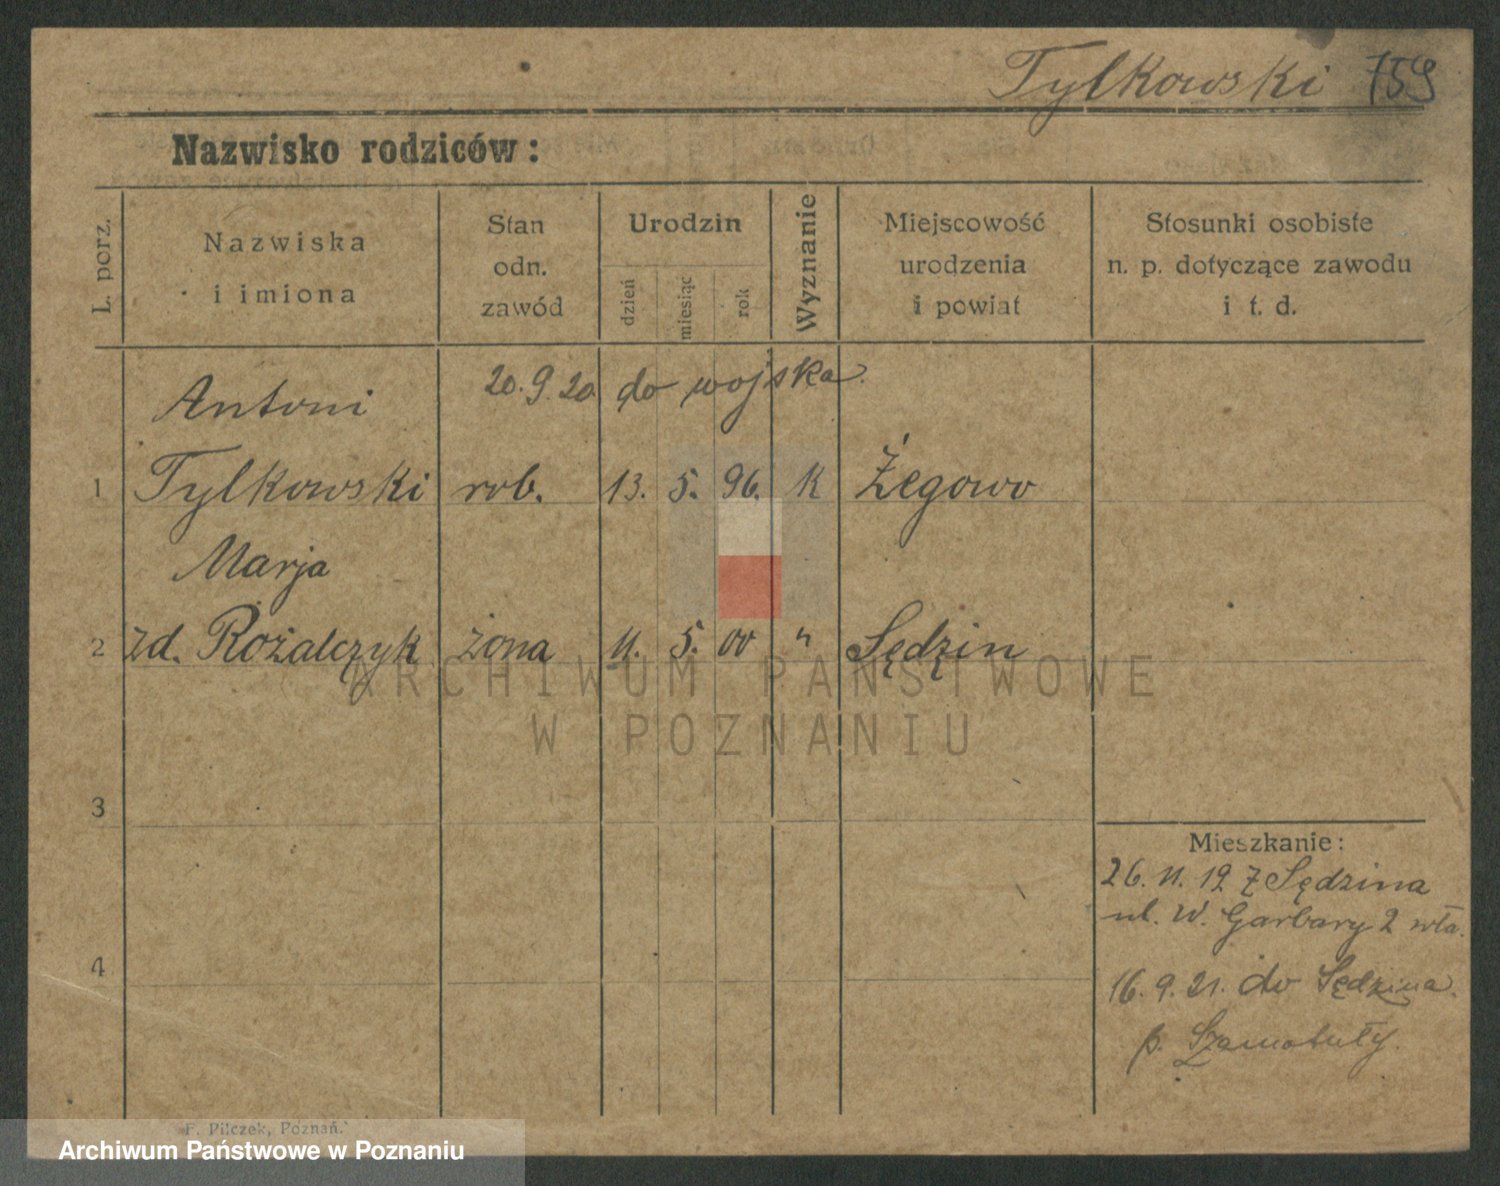 Tylkowski 759
Nazwisko rodziców:
L. porz.
Nazwiska
i imiona
Stan
odn.
zawód
Urodzin
dzień
miesiąc
rok
Wyznanie
Miejscowość
urodzenia
i powiat
Stosunki osobiste
n. p. dotyczące zawodu
i t. d.
20.9.20 do wojska.
Antoni
1 Tylkowski rob. 13. 5. 96. K Żegowo
Marja
2 zd. Rożalczyk żona 11. 5. 00 " Sędzin
ARCHIWUM PAŃSTWOWE
W POZNANIU
3
4
Mieszkanie:
26. 11. 19 z Sędzina
ul. W. Garbary 2 wła.
16. 9. 21. do Sędzina.
p. Szamotuły.
F. Pilczek, Poznań.
Archiwum Państwowe w Poznaniu